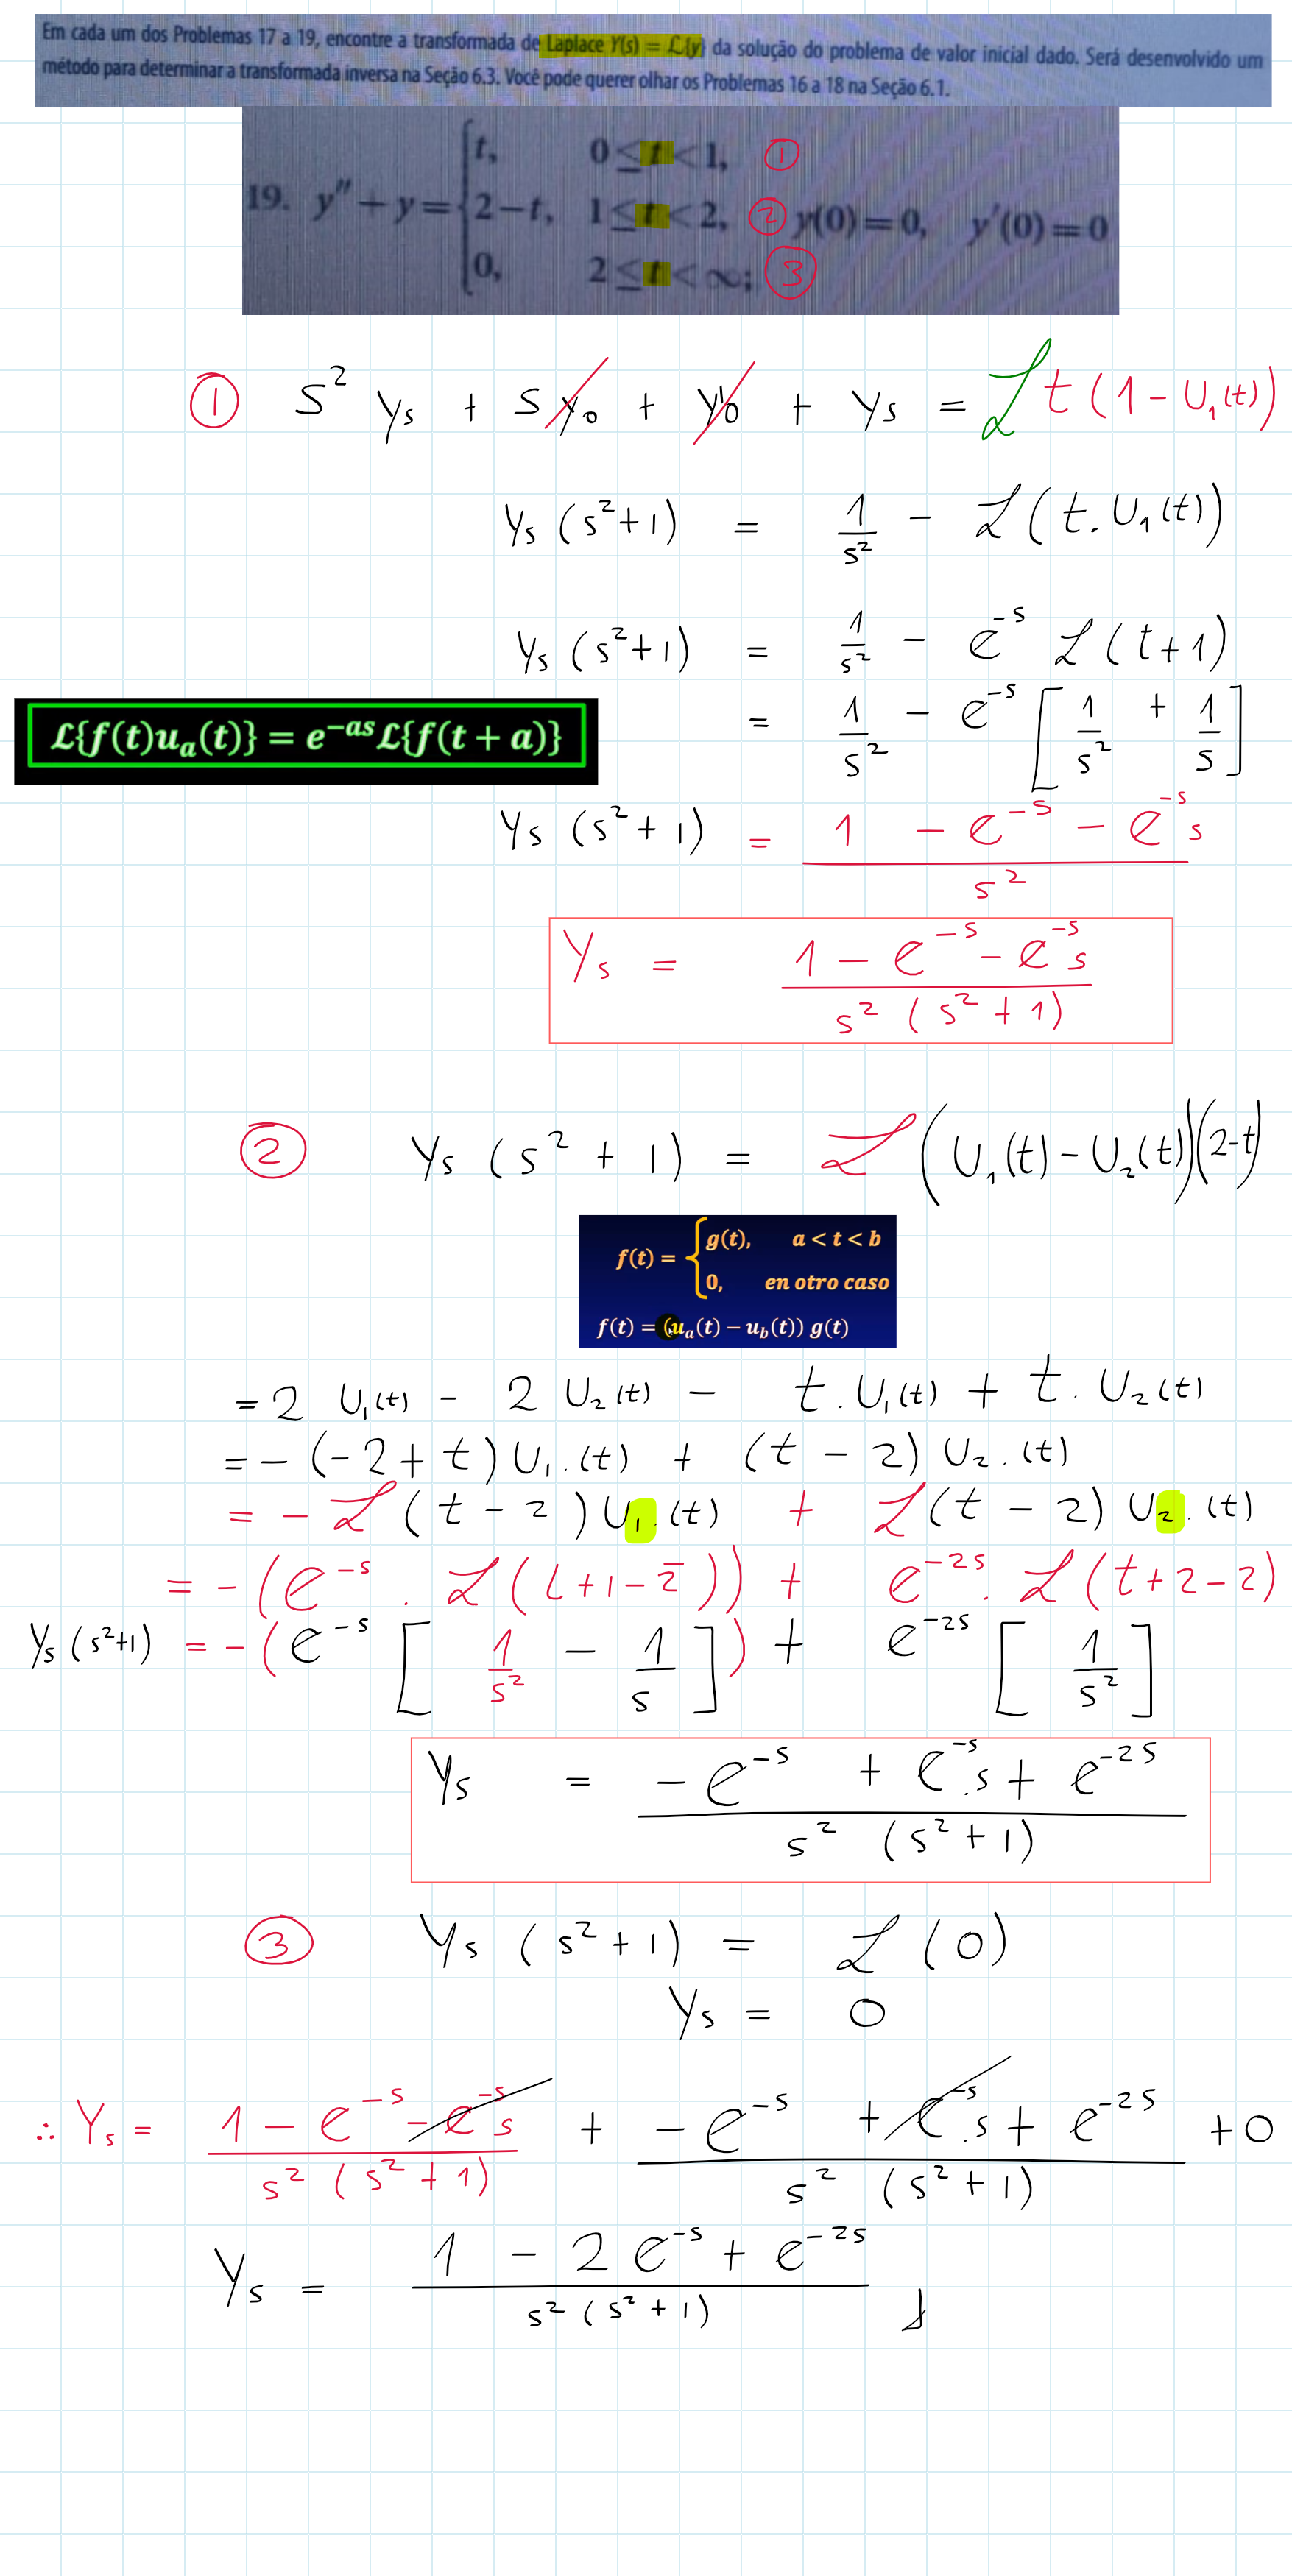 Em cada um dos Problemas 17 a 19, encontre a transformada de Laplace Y(s) = ℒ{y} da solução do problema de valor inicial dado. Será desenvolvido um
método para determinar a transformada inversa na Seção 6.3. Você pode querer olhar os Problemas 16 a 18 na Seção 6.1.
t, 0 ≤ t < 1, ①
19. y'' + y = { 2 − t, 1 ≤ t < 2, ② y(0) = 0, y'(0) = 0
0, 2 ≤ t < ∞; ③
① S² Ys + S y₀ + y'₀ + Ys = ℒ t (1 − U₁(t))
Ys (s²+1) = 1/s² − ℒ(t. U₁(t))
Ys (s²+1) = 1/s² − e^-s ℒ(t+1)
= 1/s² − e^-s [1/s² + 1/s]
ℒ{f(t)uₐ(t)} = e^-as ℒ{f(t + a)}
Ys (s²+1) = (1 − e^-s − e^-s s)/s²
Ys = (1 − e^-s − e^-s s)/(s² (s² + 1))
② Ys (s² + 1) = ℒ (U₁(t) − U₂(t))(2-t)
f(t) = { g(t), a < t < b
0, en otro caso
f(t) = (uₐ(t) − u_b(t)) g(t)
= 2 U₁(t) − 2 U₂(t) − t. U₁(t) + t. U₂(t)
= − (−2 + t) U₁.(t) + (t − 2) U₂.(t)
= − ℒ(t − 2) U₁.(t) + ℒ(t − 2) U₂.(t)
= − (e^-s . ℒ(t+1−2)) + e^-2s . ℒ(t+2−2)
Ys (s²+1) = − (e^-s [1/s² − 1/s]) + e^-2s [1/s²]
Ys = (− e^-s + e^-s.s + e^-2s)/(s² (s² + 1))
③ Ys (s² + 1) = ℒ(0)
Ys = 0
∴ Ys = (1 − e^-s − e^-s s)/(s² (s² + 1)) + (− e^-s + e^-s.s + e^-2s)/(s² (s² + 1)) + 0
Ys = (1 − 2 e^-s + e^-2s)/(s² (s² + 1))